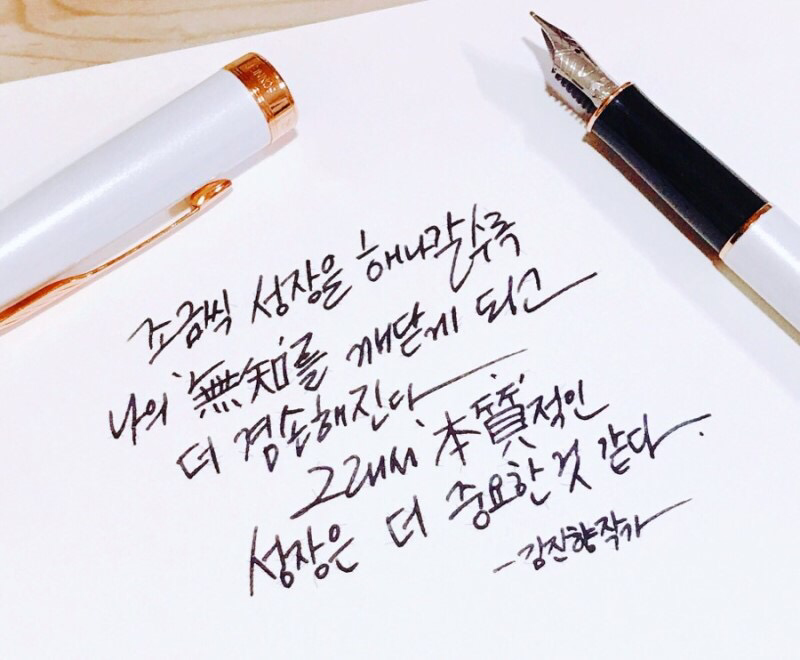 조금씩 성장을 해나갈수록
나의 無知를 깨닫게 되고
더 겸손해진다.
그래서 本質적인
성장은 더 중요한 것 같다.
-강진향작가